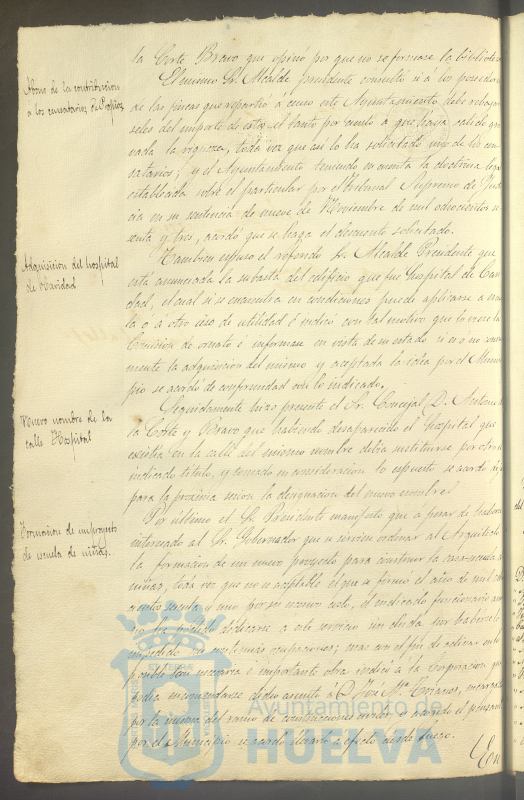 la Corte Bravo que opinó por que no se formase la biblioteca
Abono de la contribucion
a los censatarios de Propios
El mismo Sr. Alcalde Presidente consultó si a los poseedores
de las fincas que repartió á censo este Ayuntamiento debe rebajar
seles del importe de estos el tanto por ciento a que haya salido gra
vada la riqueza, toda vez que asi lo ha solicitado uno de los cen
satarios; y el Ayuntamiento teniendo en cuenta la doctrina legal
establecida sobre el particular por el Tribunal Supremo de Justi
cia en su sentencia de nueve de Noviembre de mil ochocientos se
senta y tres, acordó que se haga el descuento solicitado.
Adquisicion del hospital
de Caridad
Tambien espuso el referido Sr. Alcalde Presidente que
está anunciada la subasta del edificio que fue hospital de Cari
dad, el cual si se encuentra en condiciones puede aplicarse a escue
la o á otro uso de utilidad é indicó con tal motivo que lo viese la
Comision de ornato é informase en vista de su estado si es o no conve
niente la adquisicion del mismo y aceptada la idea por el Munici
pio se acordó de conformidad con lo indicado.
Nuevo nombre de la
calle Hospital
Seguidamente hizo presente el Sr. Concejal D. Antonio de
la Corte y Bravo que habiendo desaparecido el hospital que
existia en la calle del mismo nombre debia sustituirse por otro el
indicado titulo, y tomado en consideracion lo expuesto se acordó
para la proxima sesion la designacion del nuevo nombre.
Formacion de un proyecto
de escuela de niñas.
Por último el Sr. Presidente manifestó que a pesar de haberse
interesado al Sr. Gobernador que se sirviese ordenar al Arquitecto
la formacion de un nuevo proyecto para construir la casa-escuela de
niñas, toda vez que no es aceptable el que se formó el año de mil ocho
cientos sesenta y uno por su escesivo costo, el indicado funcionario aun
no ha podido dedicarse a este servicio sin duda por haberselo
impedido sus continuas ocupaciones; mas con el fin de activar en lo
posible tan necesaria é importante obra indicó a la Corporacion que
podia encomendarse dicho asunto á D. José Mª
por la misma del ramo de construcciones civiles y acordó el
por el Municipio se acordó llevarlo a efecto desde luego.
Ayuntamiento de
HUELVA